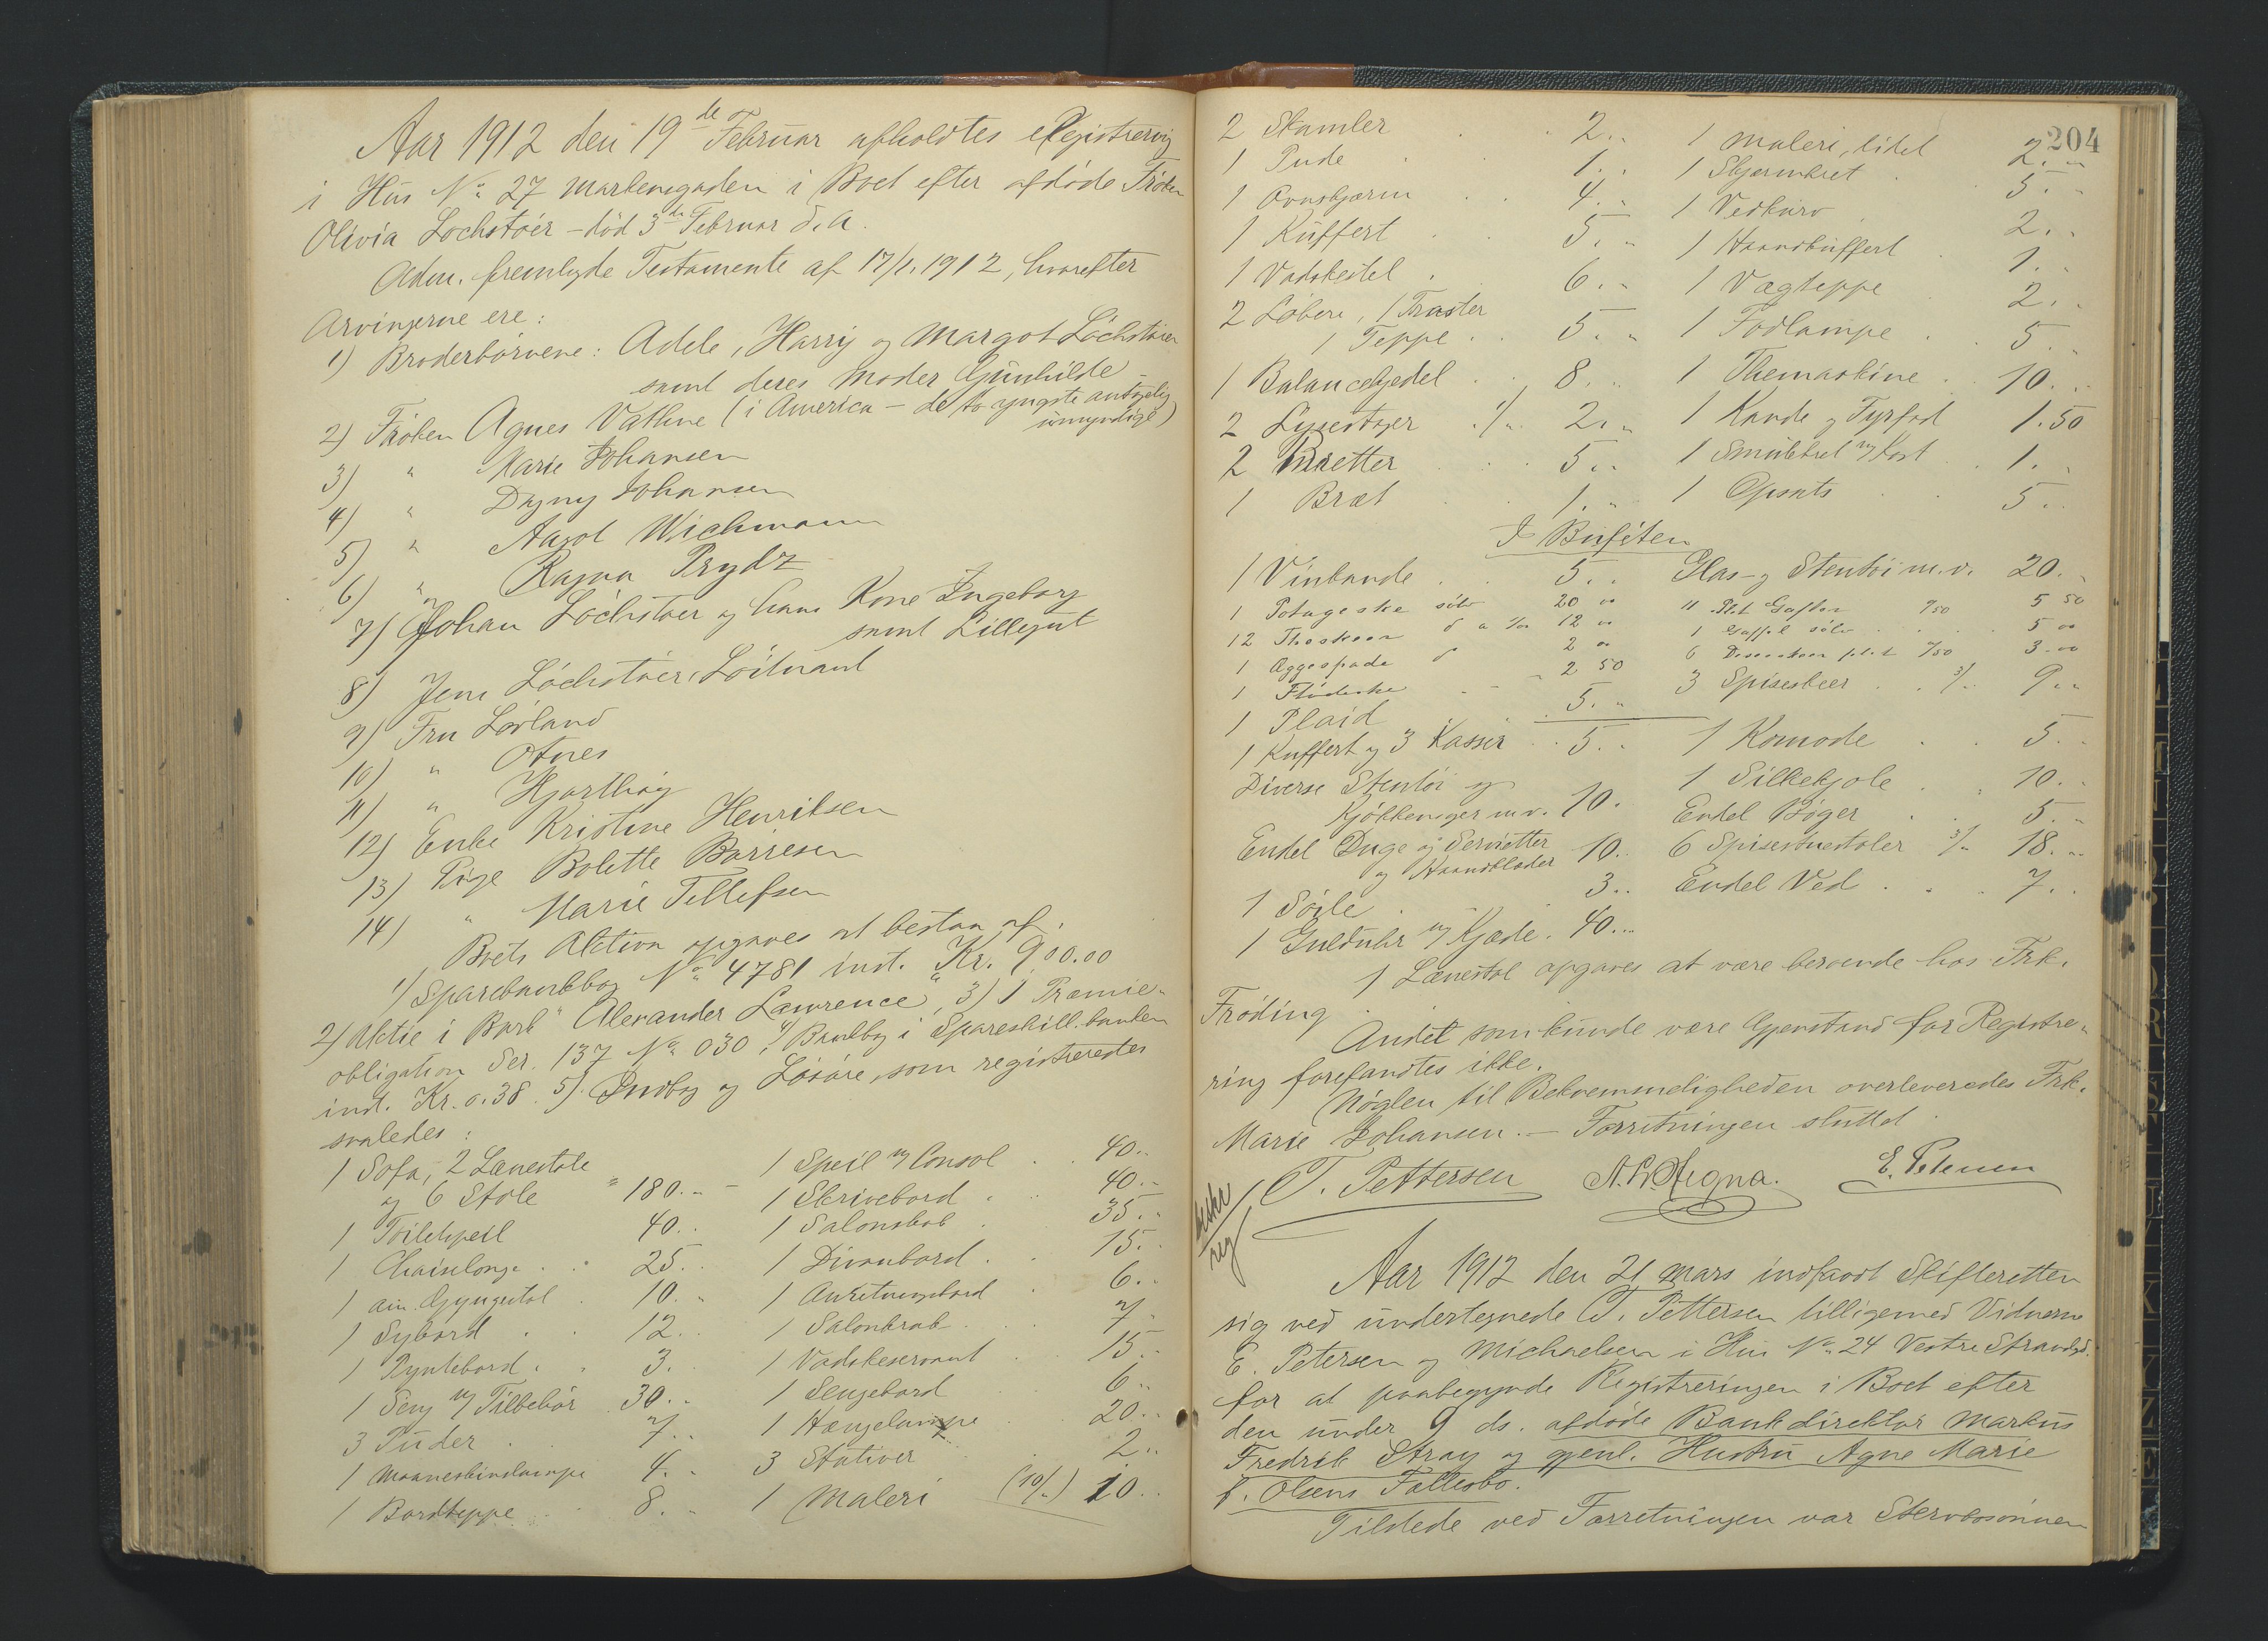 Aar 1912 den 19de Februar afholdtes Registrering
i Hus No 27 Markensgaden i Boet efter afdöde Fröken
Olivia Lochstöer – död 3de Februar d. A.
Adm. fremlagde Testamente af 17/1. 1912, hvorefter
Arvingerne ere:
1) Broderbörnene: Adele, Harry og Margot Löchstöer
samt deres Moder Gunhilde –
2) Fröken Agnes Vathne (i America – de to yngste antagelig
umyndige)
3) " Marie Johansen
4) " Dagny Johansen
5) " Aagot Wichmann
6) " Ragna Prydz
7) Johan Löchstöer og hans Kone Ingeborg
samt Lillegut
8) Jens Löchstöer, Löitnant
9) Fru Lövland
10) " Otnes
11) " Hjorthöy
12) Enke Kristine Henriksen
13) Pige Bolette Börresen
14) " Marie Tellefsen
Boets Aktiva opgaves at bestaa af:
1) Sparebankbog No 4781 inst. Kr. 900.00
2) Aktie i Bark "Alexander Lawrence", 3) 1 Præmie-
obligation Ser. 137 No 030, 4) Bankbog i Spareskill.banken
ind. Kr. 0.38. 5). Indbo og Lösöre, som registreredes
saaledes:
1 Sofa, 2 Lænestole
og 6 Stole " 180. "
1 Toiletspeil 40. "
1 Chaiselonge 25. "
1 am. Gyngestol 10. "
1 Sybord 12. "
1 Pyntebord 3. "
1 Seng m/ Tilbehör 30. "
3 Puder 7. "
1 Maaneskinslampe 4. "
1 Bordteppe 8. "
1 Speil m/ Consol 40. "
1 Skrivebord 40. "
1 Salonskab 35. "
1 Divanbord 15. "
1 Anretningsbord 6. "
1 Salonkrak 7. "
1 Vadskeservant 15. "
1 Sengebord 6. "
1 Hængelampe 20. "
3 Stativer 2. "
1 Maleri (10/") 10. "
204
2 Skamler 2. "
1 Pude 1. "
1 Ovnskjærm 4. "
1 Kuffert 5. "
1 Vadskestel 6. "
2 Löbere, 1 Traster
1 Teppe 5. "
1 Balanceskjedel 8. "
2 Lysestager 1/" 2. "
2 Buretter 5. "
1 Bræt 1. "
1 Maleri, lidet 2. "
1 Skjærmbret 5. "
1 Vedkurv 2. "
1 Haandkuffert 1. "
1 Vægteppe 2. "
1 Fodlampe 5. "
1 Themaskine 10. "
1 Kande og Tyrfad 1.50
1 Smulebret m/ Kost 1. "
1 Opsats 5. "
I Bufeten
1 Vinkande 5. "
1 Potageske sölv 20 "
12 Theskeer do a 1/00 12 "
1 Æggespade do 2 "
1 Flödeske 2 50
1 Plaid 5. "
1 Kuffert og 3 Kasser 5. "
Diverse Stentöi og
Kjökkensager m.v. 10.
Endel Duge og Servietter
og Haandklæder 10. "
1 Söile 3. "
1 Gulduhr m/ Kjæde 40. "
Glas- og Stentöi m.v. 20. "
11 Plet Gafler "/50 5 50
1 Gaffel sölv 5 "
6 Desertskeer plet "/50 3. "
3 Spiseskeer 3/" 9. "
1 Komode 5. "
1 Silkekjole 10. "
Endel Böger 5. "
6 Spisestuestoler 3/" 18. "
Endel Ved 7. "
1 Lænestol opgaves at være beroende hos Frk.
Fröding.
Andet som kunde være Gjenstand for Registre-
ring forefandtes ikke.
Nöglen til Bekvemmeligheden overleveredes Frk.
Marie Johansen. – Forretningen sluttet.
T. Pettersen E. Petersen
beskr
reg
Aar 1912 den 21 Mars indfandt Skifteretten
sig ved undertegnede T. Pettersen tilligemed Vidnerne
E. Petersen og Michaelsen i Hus No 24 Vestre Strandgd.
for at paabegynde Registreringen i Boet efter
den under 9 ds. afdöde Bankdirektör Markus
Fredrik Stray og gjenl. Hustru Agne Marie
f. Olsens Fællesbo.
Tilstede ved Forretningen var Stervbosönnen